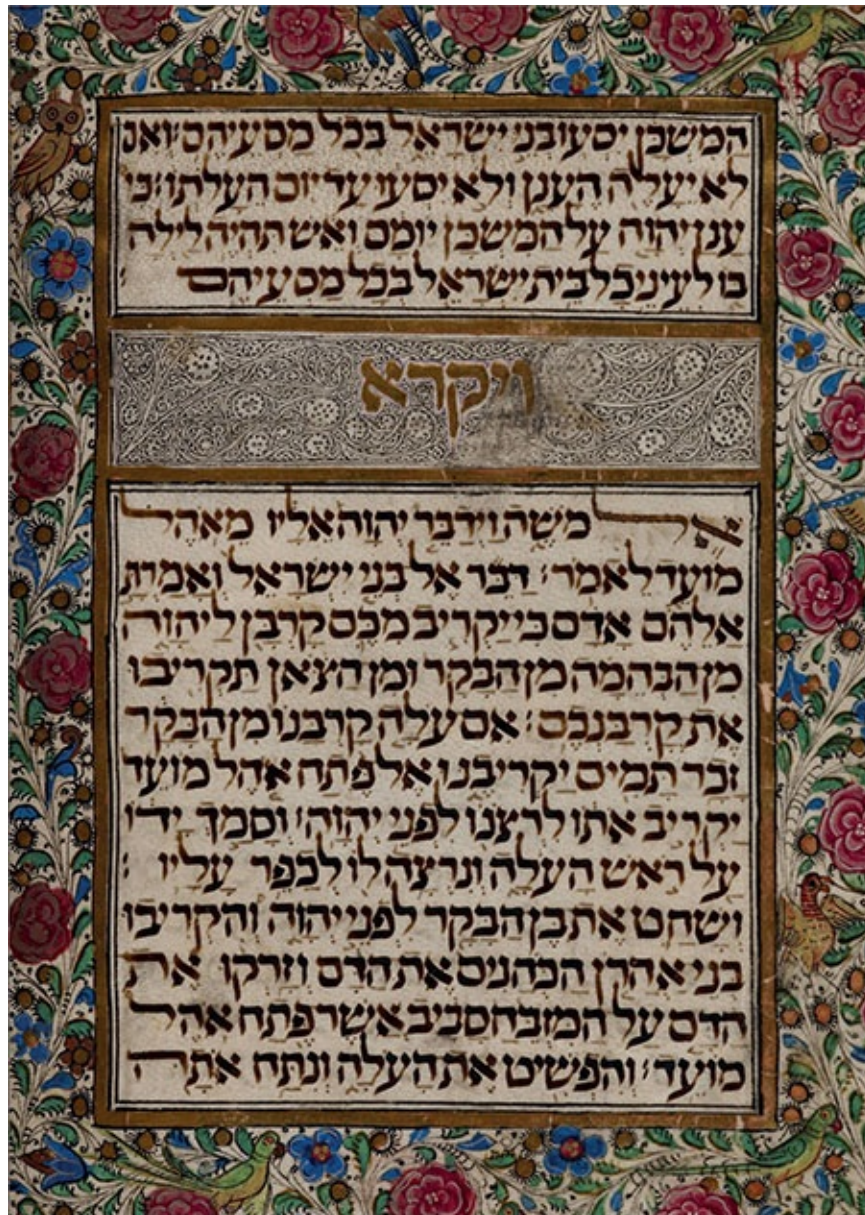 המשכן יסעו בני ישראל בכל מסעיהם: ואם
לא יעלה הענן ולא יסעו עד יום העלתו: כי
ענן יהוה על המשכן יומם ואש תהיה לילה
בו לעיני כל בית ישראל בכל מסעיהם
ויקרא
אל משה וידבר יהוה אליו מאהל
מועד לאמר: דבר אל בני ישראל ואמרת
אלהם אדם כי יקריב מכם קרבן ליהוה
מן הבהמה מן הבקר ומן הצאן תקריבו
את קרבנכם: אם עלה קרבנו מן הבקר
זכר תמים יקריבנו אל פתח אהל מועד
יקריב אתו לרצנו לפני יהוה: וסמך ידו
על ראש העלה ונרצה לו לכפר עליו:
ושחט את בן הבקר לפני יהוה והקריבו
בני אהרן הכהנים את הדם וזרקו את
הדם על המזבח סביב אשר פתח אהל
מועד: והפשיט את העלה ונתח אתה